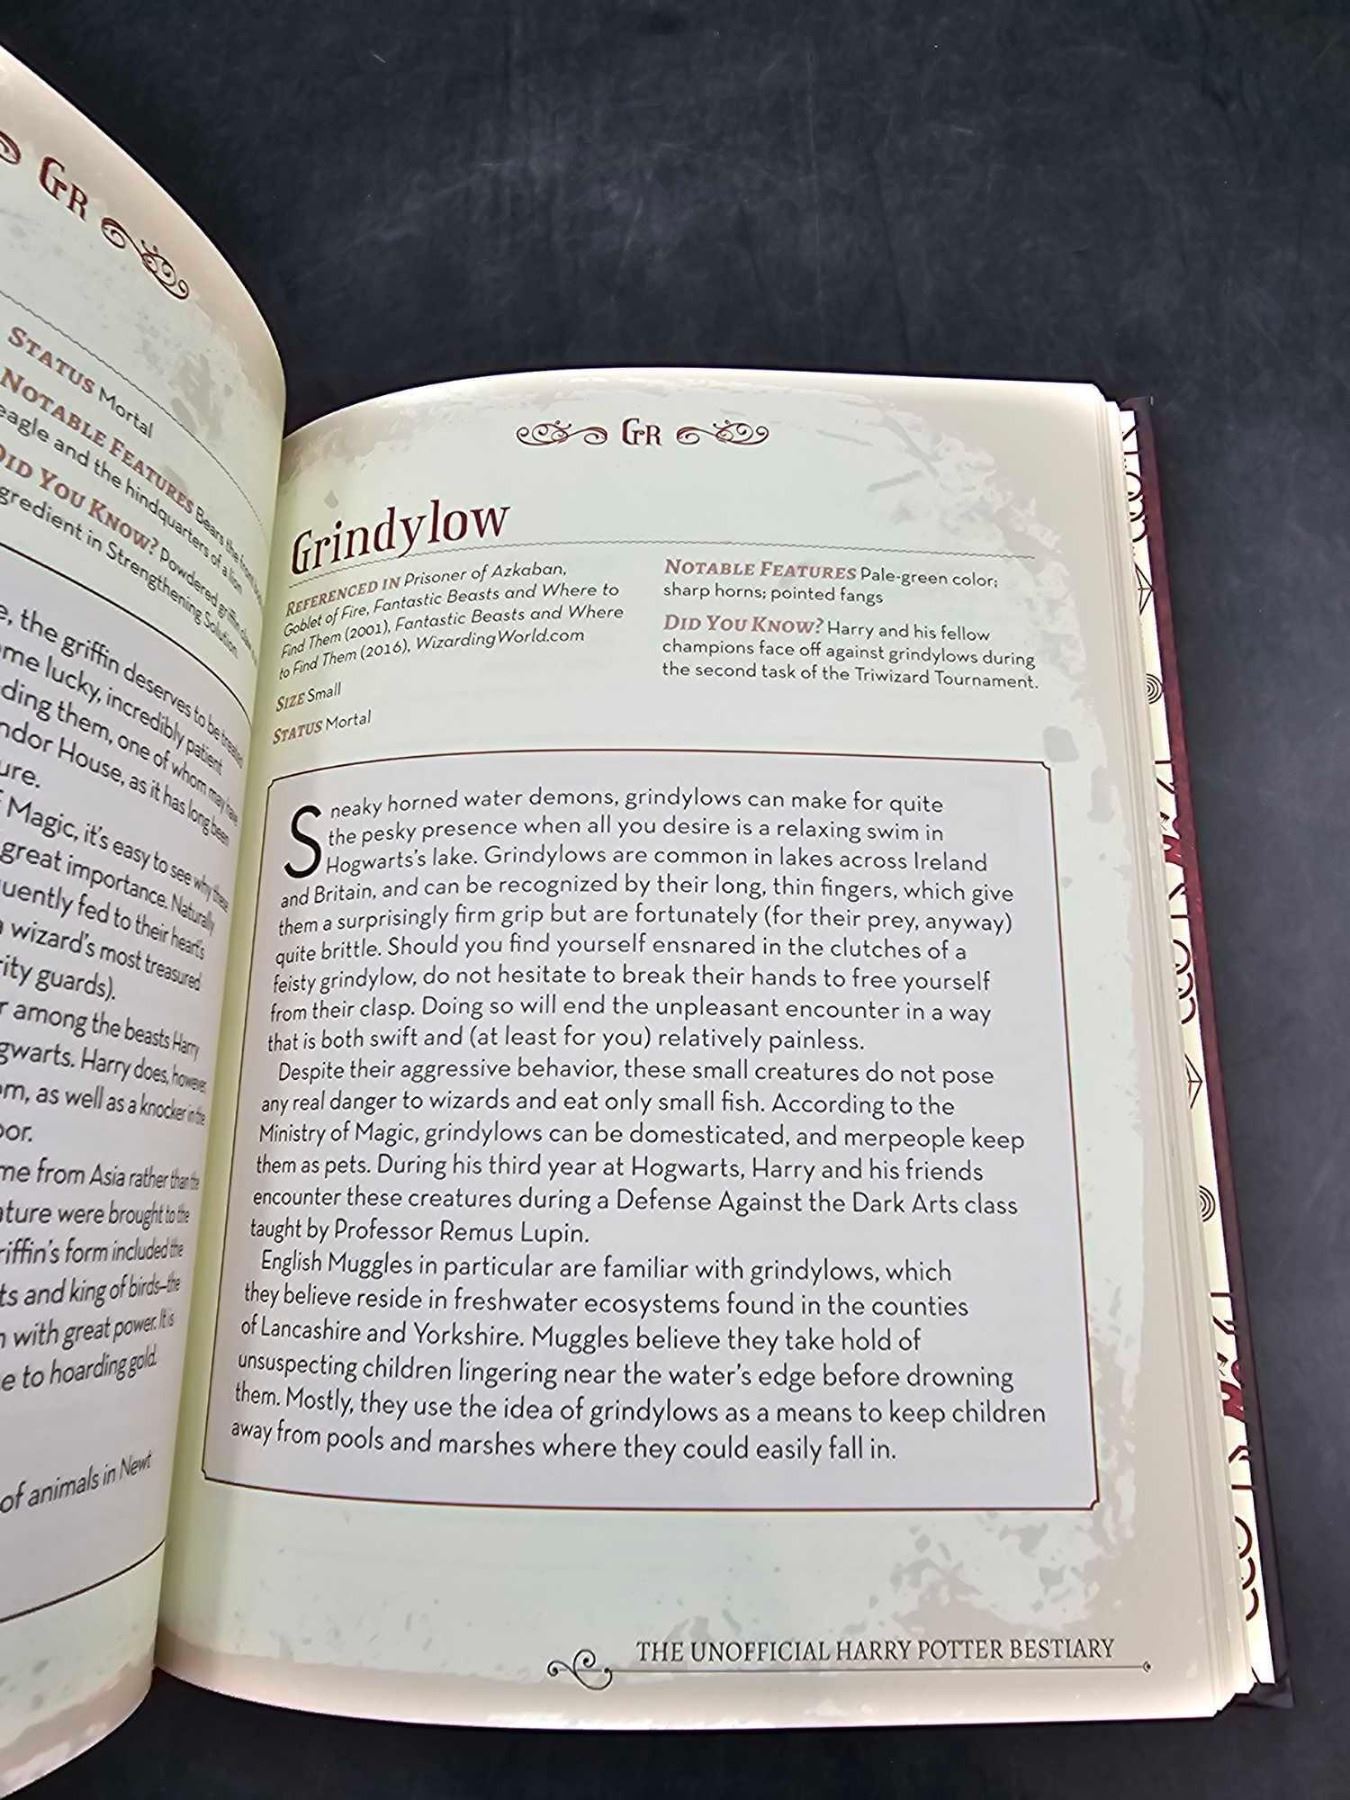 GR
STATUS Mortal
NOTABLE FEATURES Bears the
eagle and the hindquarters of a lion
DID YOU KNOW? Powdered griffin
gredient in Strengthening Solution.
the griffin deserves to be treated
me lucky, incredibly patient
ding them, one of whom may have
ndor House, as it has long been
ure.
Magic, it's easy to see why these
great importance. Naturally
uently fed to their heart's
wizard's most treasured
rity guards).
among the beasts Harry
gwarts. Harry does, however,
om, as well as a knocker in the
oor.
me from Asia rather than the
ature were brought to the
riffin's form included the
ts and king of birds—the
with great power. It is
e to hoarding gold.
of animals in Newt
GR
Grindylow
REFERENCED IN Prisoner of Azkaban,
Goblet of Fire, Fantastic Beasts and Where to
Find Them (2001), Fantastic Beasts and Where
to Find Them (2016), WizardingWorld.com
SIZE Small
STATUS Mortal
NOTABLE FEATURES Pale-green color;
sharp horns; pointed fangs
DID YOU KNOW? Harry and his fellow
champions face off against grindylows during
the second task of the Triwizard Tournament.
Sneaky horned water demons, grindylows can make for quite
the pesky presence when all you desire is a relaxing swim in
Hogwarts's lake. Grindylows are common in lakes across Ireland
and Britain, and can be recognized by their long, thin fingers, which give
them a surprisingly firm grip but are fortunately (for their prey, anyway)
quite brittle. Should you find yourself ensnared in the clutches of a
feisty grindylow, do not hesitate to break their hands to free yourself
from their clasp. Doing so will end the unpleasant encounter in a way
that is both swift and (at least for you) relatively painless.
Despite their aggressive behavior, these small creatures do not pose
any real danger to wizards and eat only small fish. According to the
Ministry of Magic, grindylows can be domesticated, and merpeople keep
them as pets. During his third year at Hogwarts, Harry and his friends
encounter these creatures during a Defense Against the Dark Arts class
taught by Professor Remus Lupin.
English Muggles in particular are familiar with grindylows, which
they believe reside in freshwater ecosystems found in the counties
of Lancashire and Yorkshire. Muggles believe they take hold of
unsuspecting children lingering near the water's edge before drowning
them. Mostly, they use the idea of grindylows as a means to keep children
away from pools and marshes where they could easily fall in.
THE UNOFFICIAL HARRY POTTER BESTIARY